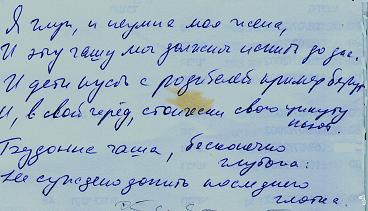 Я глуп, и неумна моя жена,
И эту чашу мы должны испить до дна.
И дети пусть с родителей пример берут
И, в свой черёд, стоически свою цикуту
пьют.
Бездонна чаша, бесконечно
глубока.
Не суждено допить последнего
глотка.